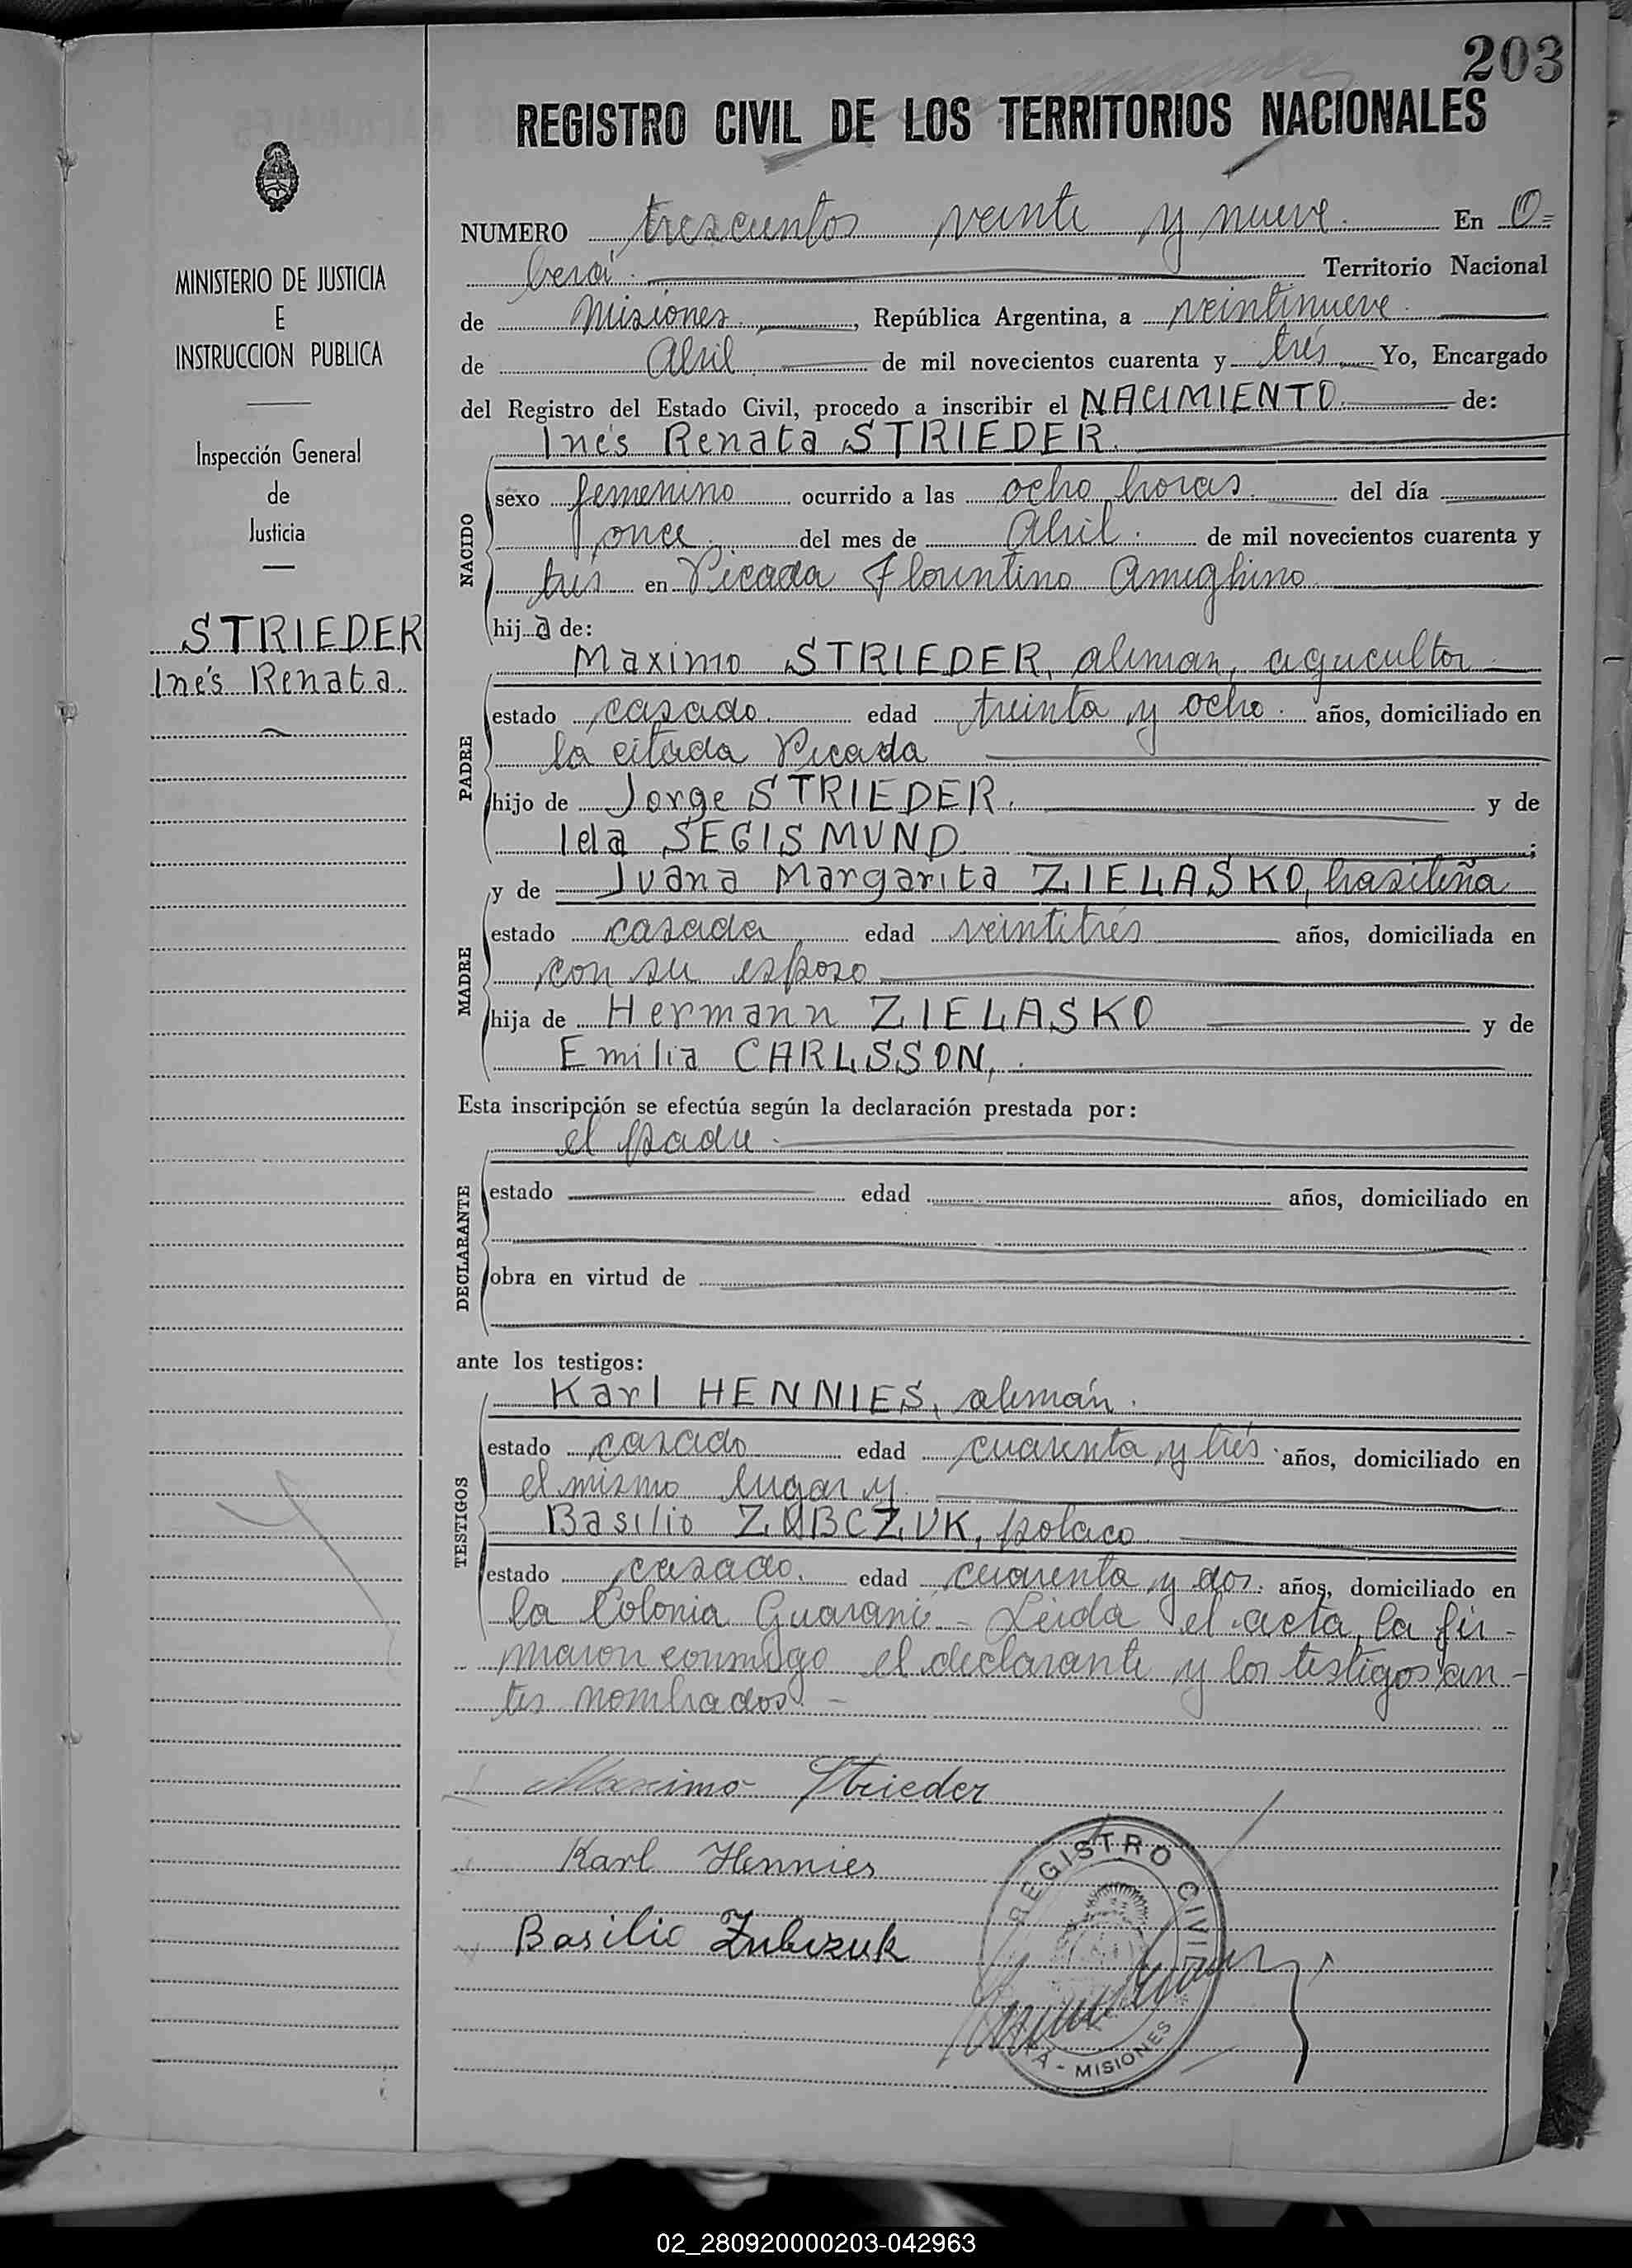 203
REGISTRO CIVIL DE LOS TERRITORIOS NACIONALES
MINISTERIO DE JUSTICIA
E
INSTRUCCION PUBLICA
Inspección General
de
Justicia
STRIEDER
Inés Renata
NUMERO trescientos veinte y nueve. En O=
berá. Territorio Nacional
de Misiones, República Argentina, a veintinueve
de Abril de mil novecientos cuarenta y tres Yo, Encargado
del Registro del Estado Civil, procedo a inscribir el NACIMIENTO de:
Inés Renata STRIEDER.
NACIDO
sexo femenino ocurrido a las ocho horas. del día
once del mes de Abril. de mil novecientos cuarenta y
tres en Picada Florentino Ameghino
hija de:
PADRE
Maximo STRIEDER, aleman, agricultor
estado casado. edad treinta y ocho. años, domiciliado en
la citada Picada
hijo de Jorge STRIEDER. y de
Ida SEGISMUND ;
y de Juana Margarita ZIELASKO, brasileña
MADRE
estado casada edad veintitrés años, domiciliada en
con su esposo
hija de Hermann ZIELASKO y de
Emilia CARLSSON,.
Esta inscripción se efectúa según la declaración prestada por:
el padre.
DECLARANTE
estado edad años, domiciliado en
obra en virtud de
ante los testigos:
TESTIGOS
Karl HENNIES, alemán.
estado casado edad cuarenta y trés. años, domiciliado en
el mismo lugar y
Basilio ZUBCZUK, polaco
estado casado. edad cuarenta y dos. años, domiciliado en
la Colonia Guaraní - Leída el acta, la fir-
maron conmigo el declarante y los testigos an-
tes nombrados. -
Maximo Strieder
Karl Hennies
Basilio Zubczuk
REGISTRO CIVIL
MISIONES
02_280920000203-042963